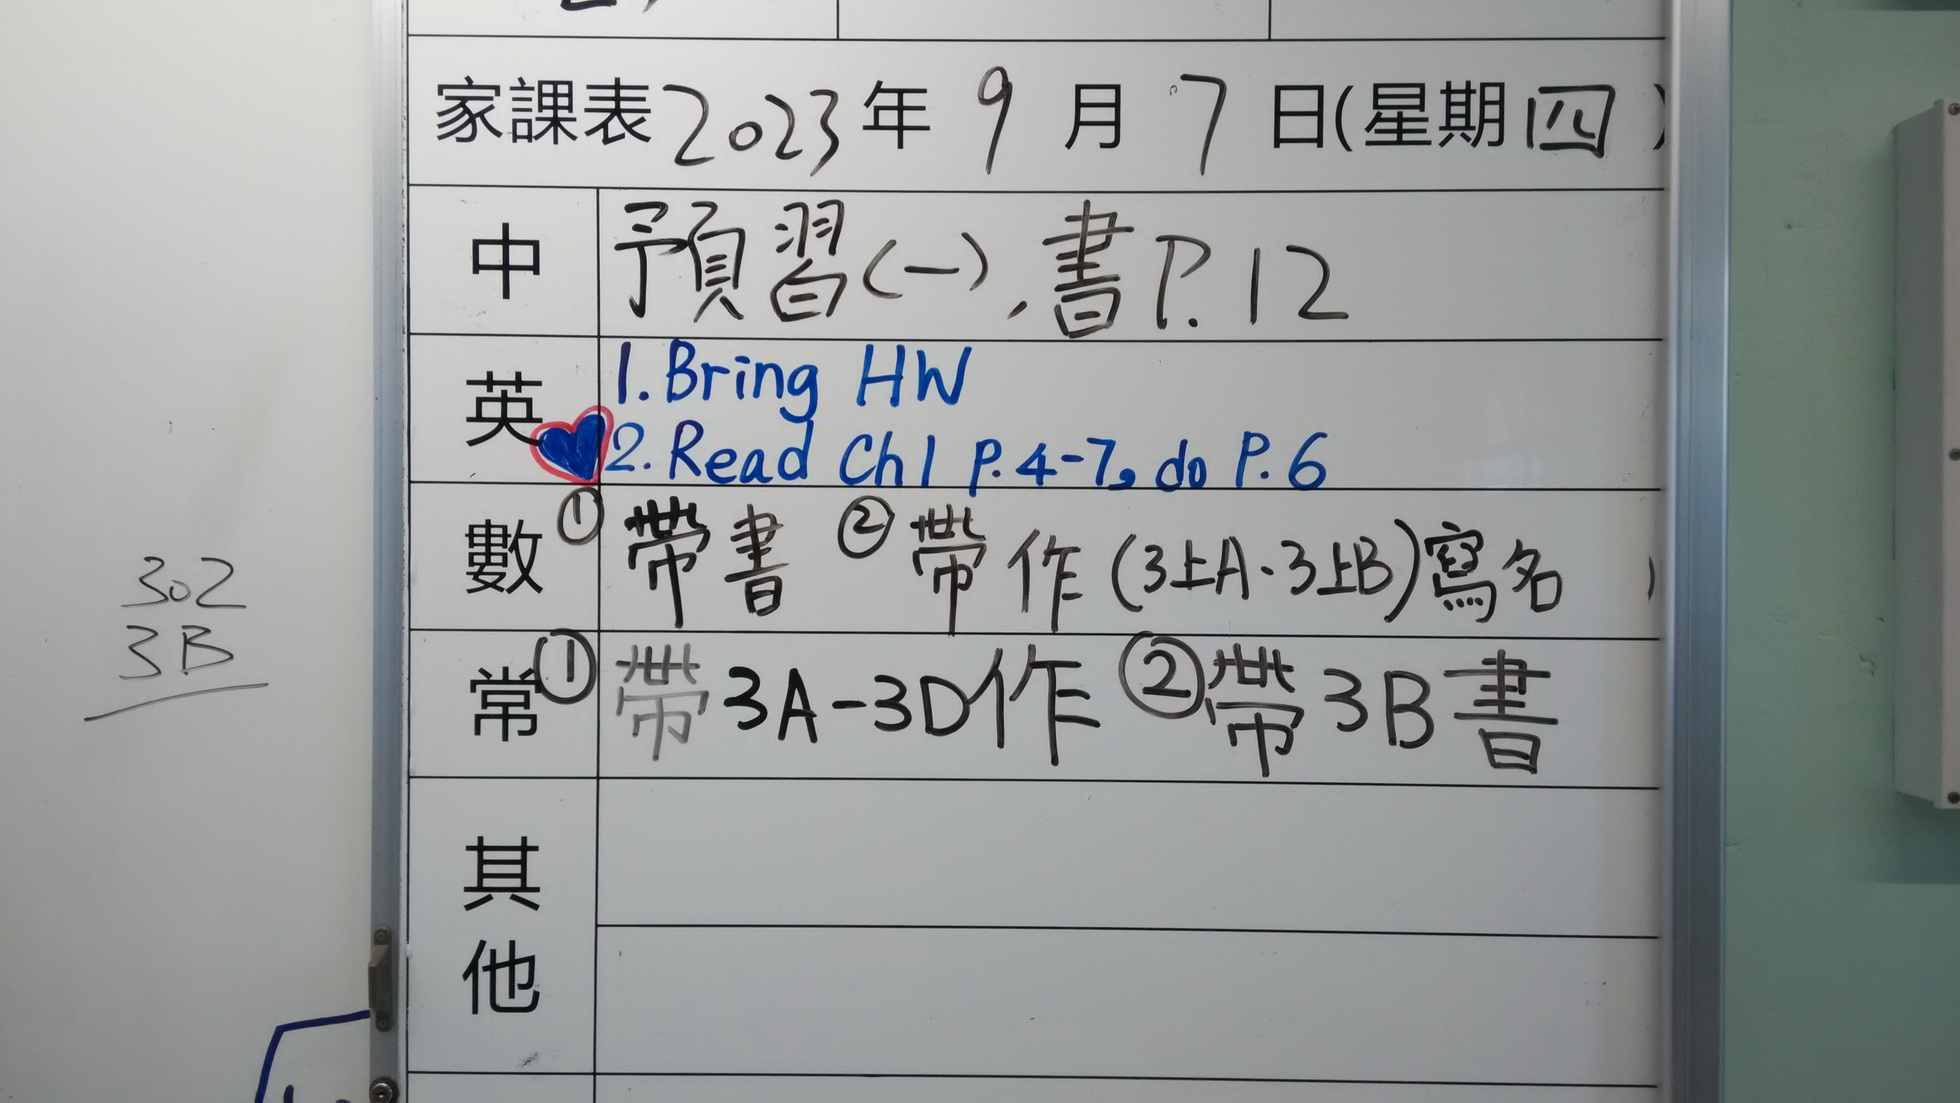 家課表 2023 年 9 月 7 日(星期四)
中 預習(一), 書P.12
英 1. Bring HW
2. Read Ch1 P.4-7, do P.6
數 ① 帶書 ② 帶作(3上A.3上B)寫名
常 ① 帶3A-3D作 ② 帶3B書
其他
302
3B